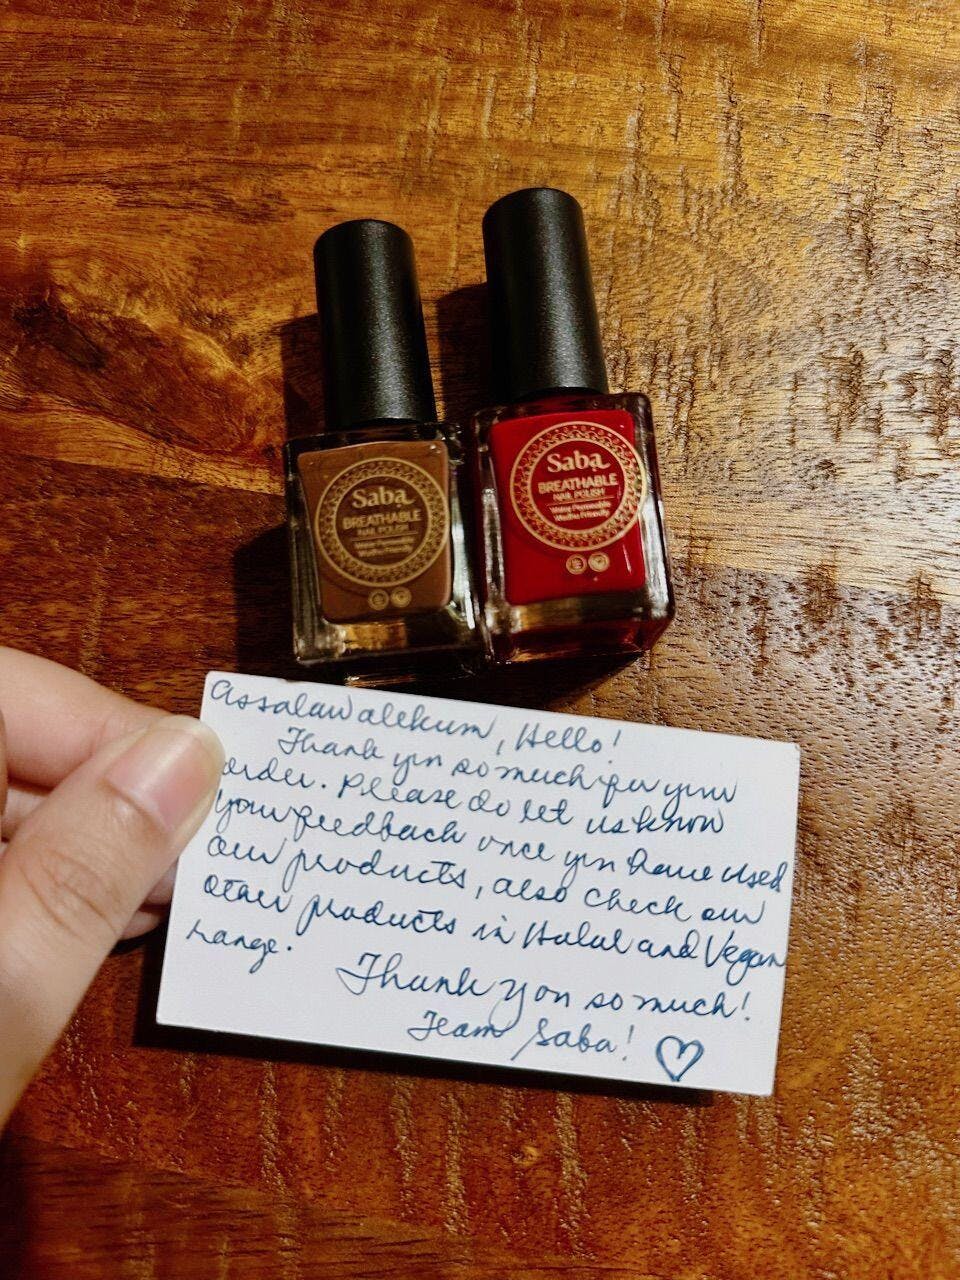 Saba
BREATHABLE
NAIL POLISH
Saba
BREATHABLE
NAIL POLISH
Water Permeable
Wudhu Friendly
Assalaw alekum, Hello!
Thank you so much for your
order. Please do let us know
your feedback once you have used
our products, also check our
other products in Halal and Vegan
range.
Thank you so much!
Team Saba!